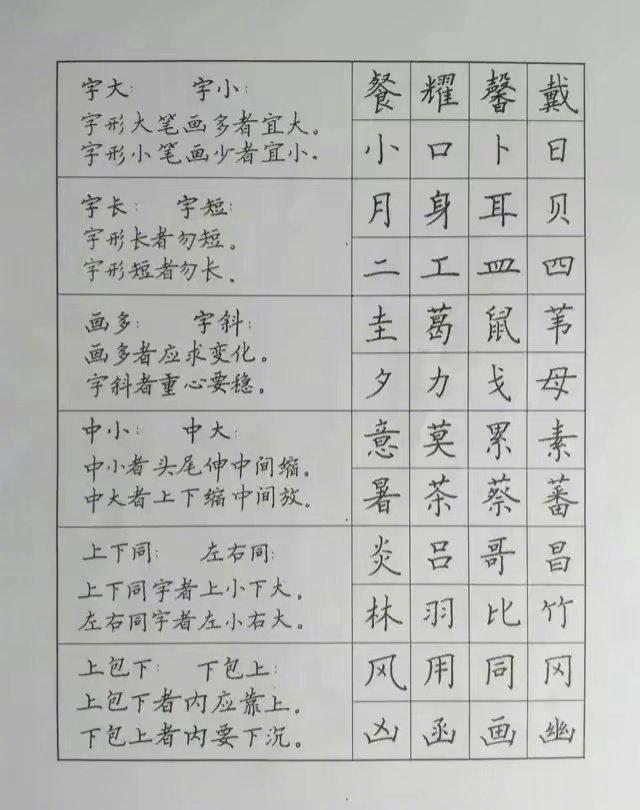 字大:  字小:
字形大笔画多者宜大。
字形小笔画少者宜小.
餐 耀 馨 戴
小 口 卜 日
字长:  字短:
字形长者勿短。
字形短者勿长。
月 身 耳 贝
二 工 皿 四
画多:  字斜:
画多者应求变化。
字斜者重心要稳。
圭 葛 鼠 苇
夕 力 戈 母
中小:  中大:
中小者头尾伸中间缩。
中大者上下缩中间放。
意 莫 累 素
暑 茶 蔡 蕃
上下同:  左右同:
上下同字者上小下大。
左右同字者左小右大。
炎 吕 哥 昌
林 羽 比 竹
上包下:  下包上:
上包下者内应靠上。
下包上者内要下沉。
风 用 同 冈
凶 函 画 幽